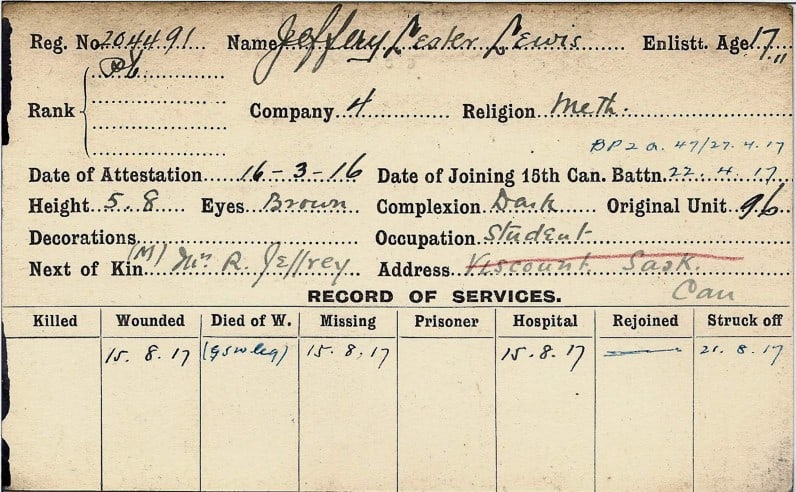 Reg. No. 204491 Name Jeffery Lester Lewis Enlistt. Age 17 11
Rank Pte Company 4 Religion Meth.
BP 2 a. 47/27.4.17
Date of Attestation 16-3-16 Date of Joining 15th Can. Battn. 22.4.17
Height 5.8 Eyes Brown Complexion Dark Original Unit 96
Decorations Occupation Student
Next of Kin (M) Mrs R. Jeffrey Address Viscount Sask.
Can
RECORD OF SERVICES.
Killed Wounded Died of W. Missing Prisoner Hospital Rejoined Struck off
15.8.17 (gsw leg) 15.8.17 15.8.17 21.8.17